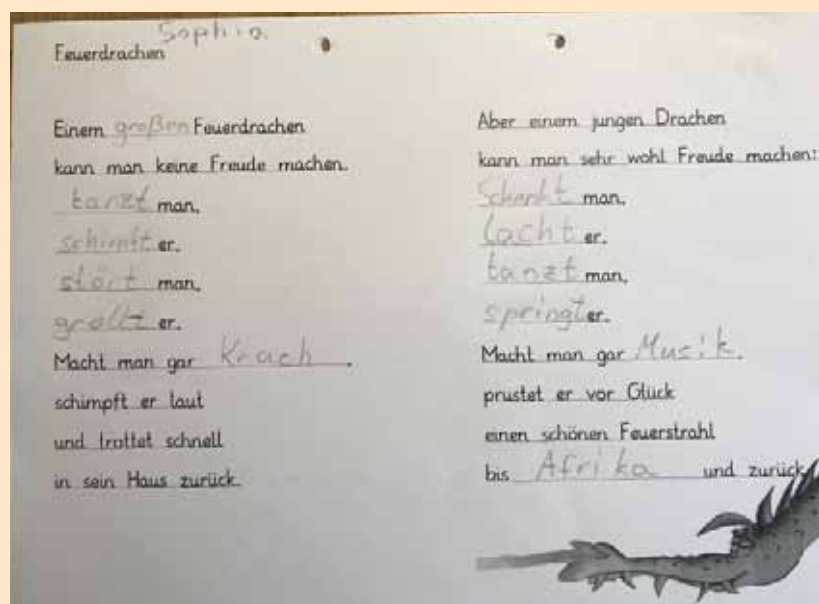 Sophia
Feuerdrachen
Einem großen Feuerdrachen
kann man keine Freude machen.
tanzt man,
schimft er.
stört man,
grollt er.
Macht man gar Krach.
schimpft er laut
und trottet schnell
in sein Haus zurück.
Aber einem jungen Drachen
kann man sehr wohl Freude machen:
Schenkt man,
lacht er.
tanzt man,
springt er.
Macht man gar Musik.
prustet er vor Glück
einen schönen Feuerstrahl
bis Afrika und zurück